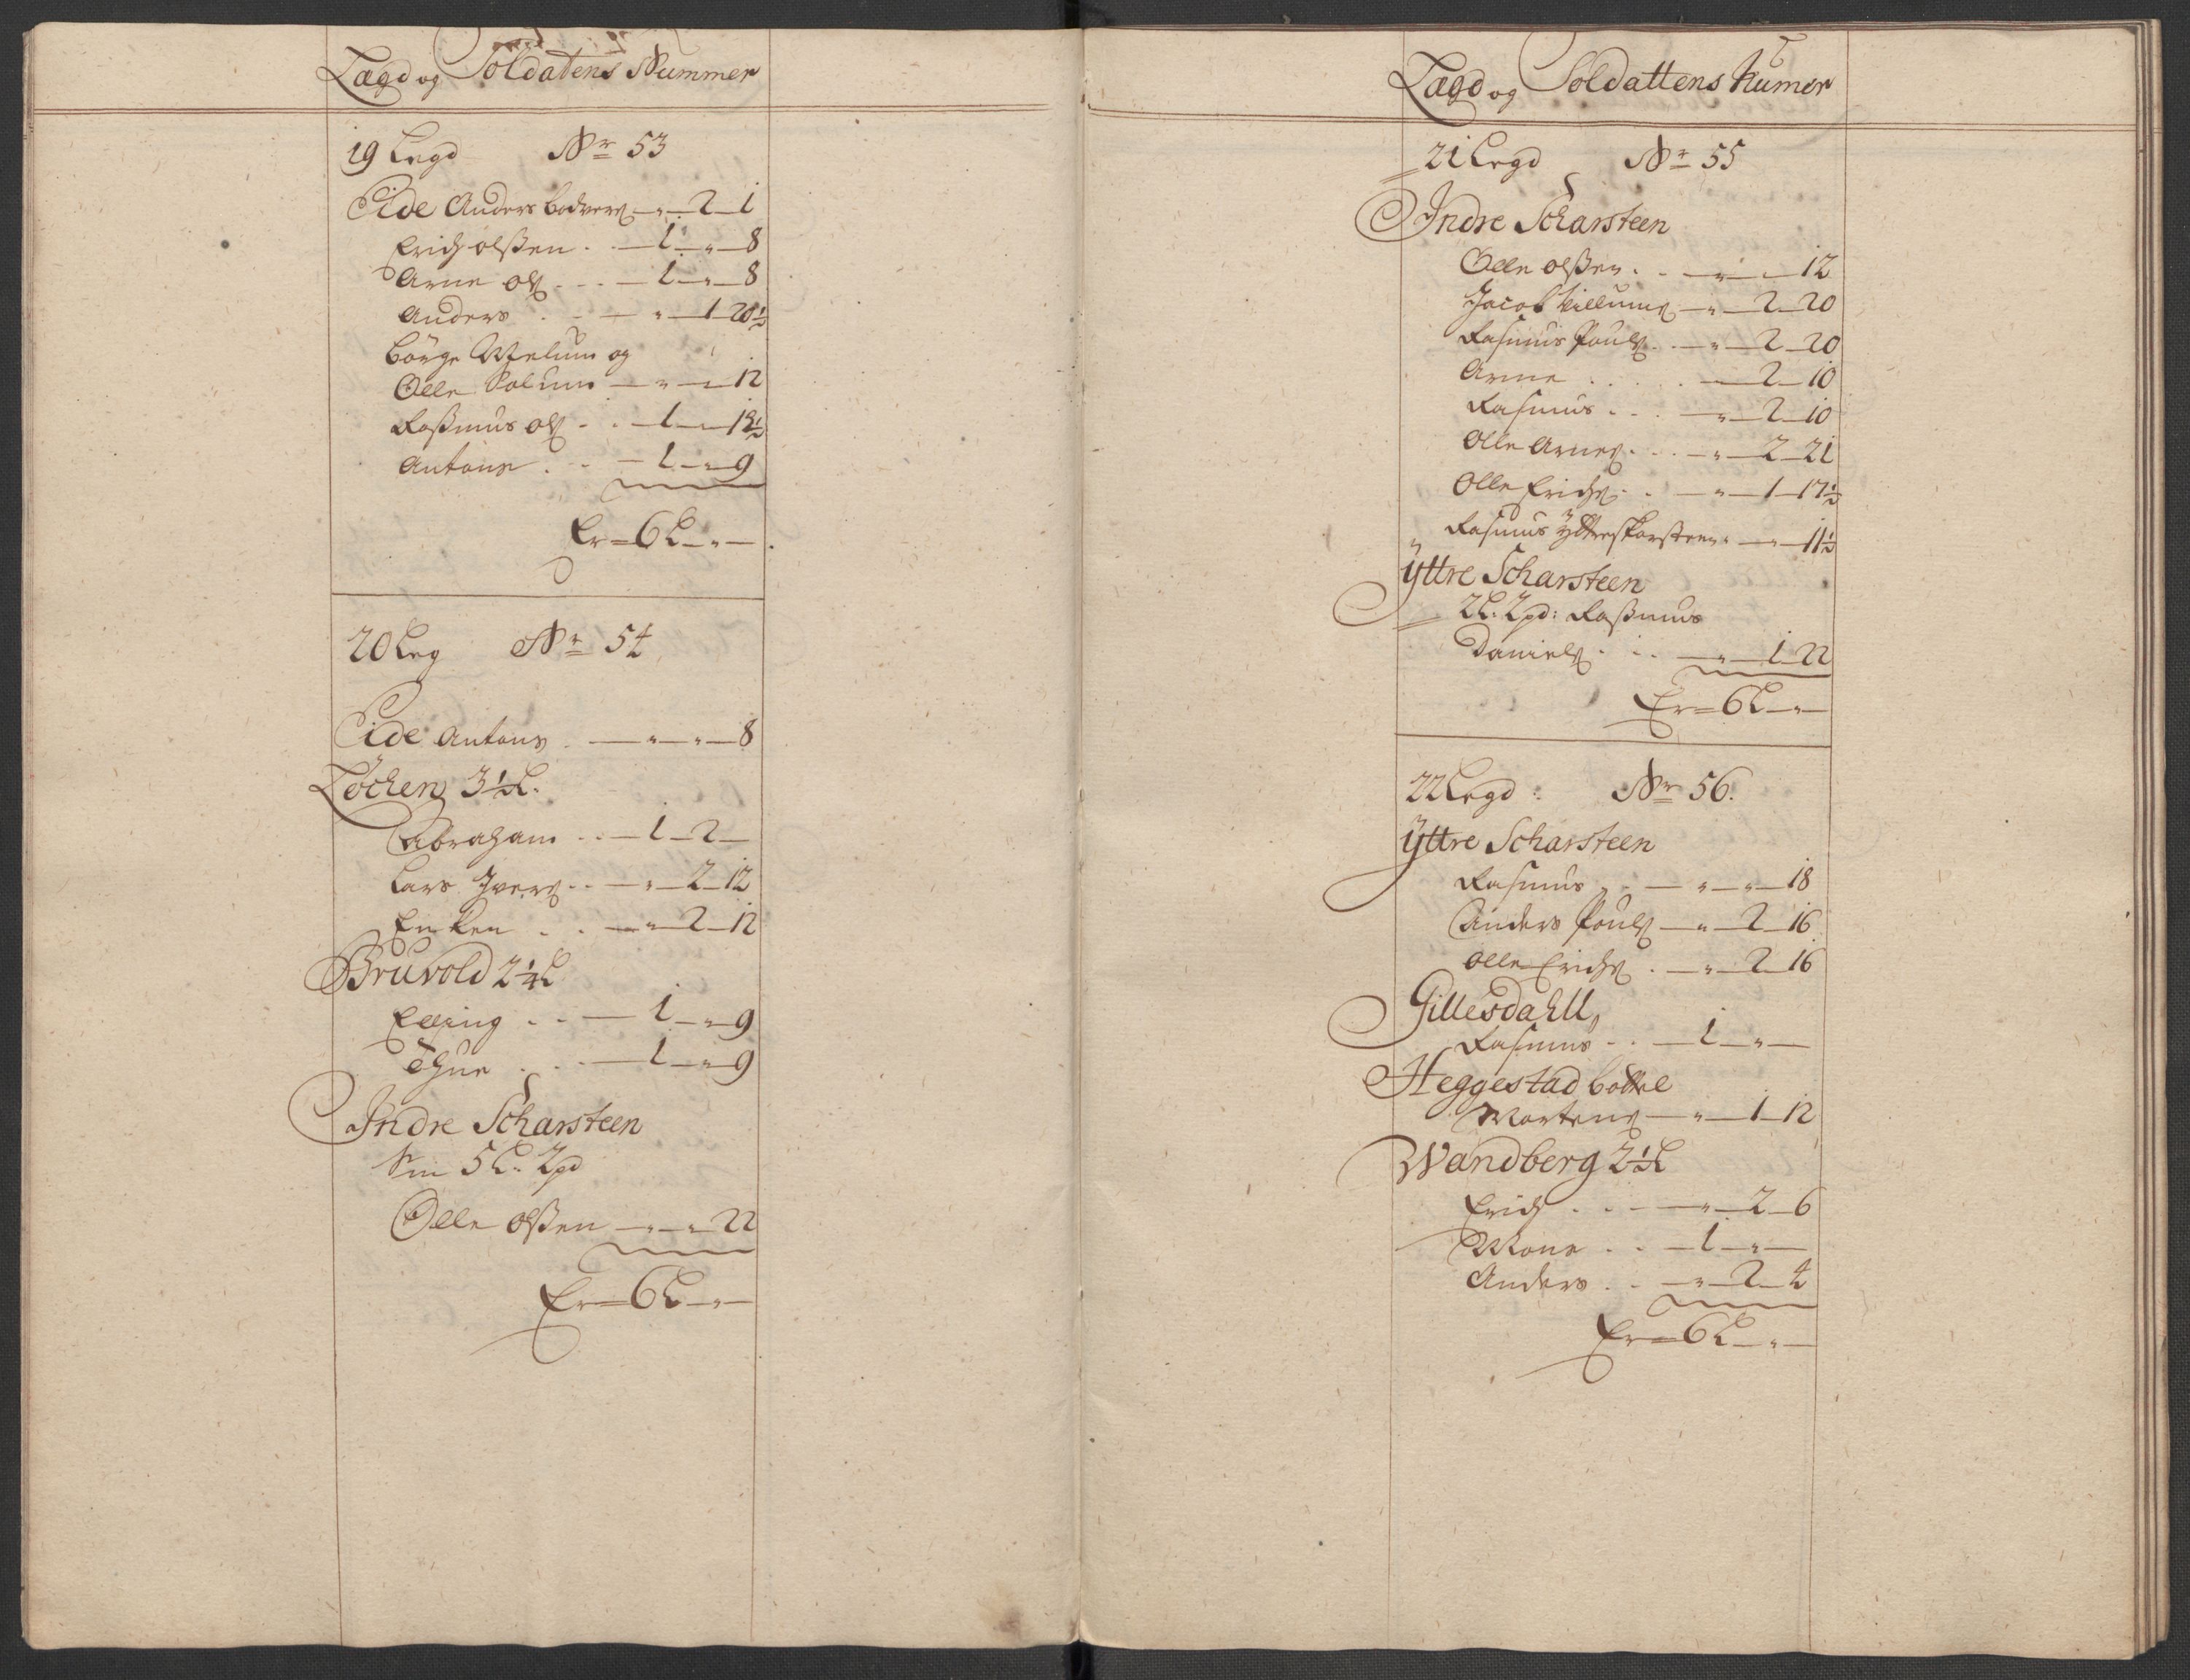 Lægd og Soldatens Nummer
19 Legd Nr 53
Eide Anders Bodvers - " - 2 - 1
Erich olßen . . - 1 - " - 8
Arne ols . . . - 1 - " - 8
Anders . . - " - 1 - 20½
Børge Welum og
Olle Solum - " - " - 12
Raßmus ols . . - 1 - " - 19½
Antons . . . - 1 - " - 9
Er = 6 L - " -
20 Leg Nr 54
Eide Antons . - " - " - 8
Løchen 3½ L.
Abraham . . - 1 - 2 -
Lars Ivers . . - " - 2 - 12
Encken . . - " - 2 - 12
Bruvold 2¼ L
Elling . . - 1 - " - 9
Thue . . . - 1 - " - 9
Indre Scharsteen
5 L. 2 pd
Olle olßen - " - " - 22
Er = 6 L - " -
Lægd og Soldattens Numer
21 Legd Nr 55
Indre Scharsteen
Olle olßen . . - " - " - 12
Jacob Villums - " - 2 - 20
Rasmus Pouls . . - " - 2 - 20
Arne . . . . - " - 2 - 10
Rasmus . . . - " - 2 - 10
Olle Arnes . . . - " - 2 - 21
Olle Erichs . . - " - 1 - 17½
" Rasmus Yttreskarsteen " - " - 11½
Yttre Scharsteen
2 L. 2 pd: Raßmus
Daniels . . . - " - 1 - 22
Er = 6 L - " -
22 Legd : Nr 56.
Yttre Scharsteen
Rasmus . . - " - " - 18
Anders Pouls - " - 2 - 16
Olle Erichs . - " - 2 - 16
Gillesdahll,
Rasmus . . - 1 - " -
Heggestadbotte
Mortens - " - 1 - 12
Wandberg 2½ L
Erich . . . - " - 2 - 6
Mons . . - 1 - " -
Anders . . - " - 2 - 4
Er = 6 L - " -